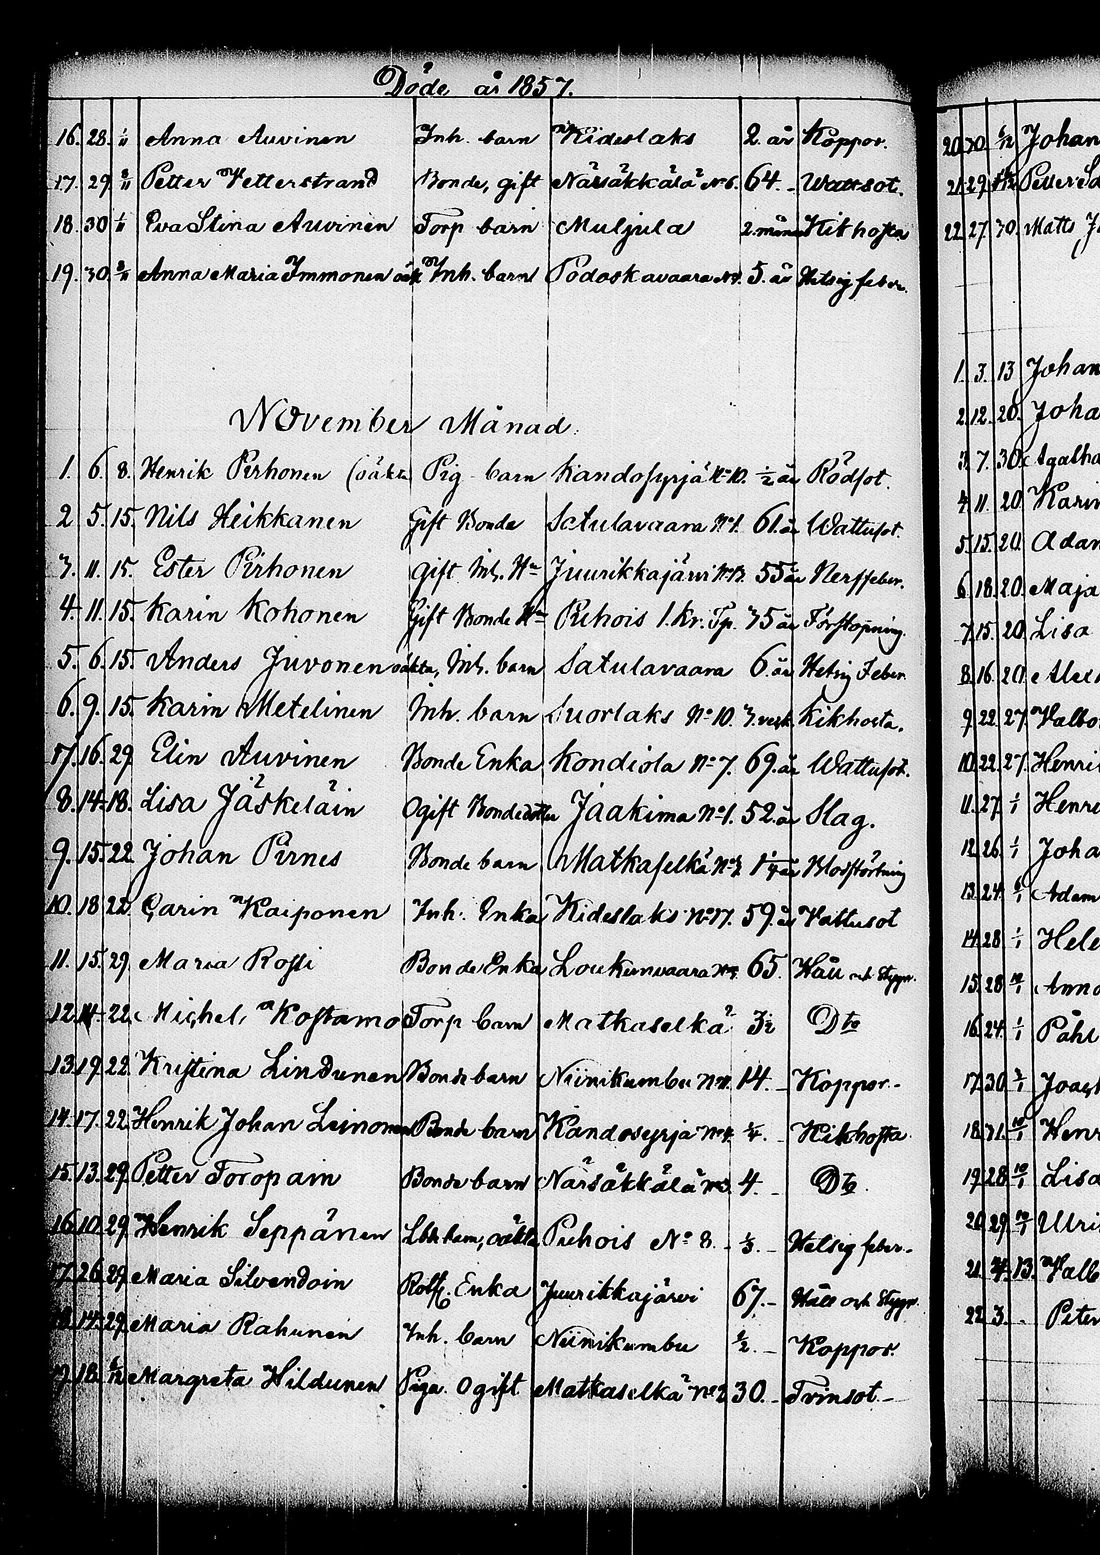 Döde år 1857.
16. 28. 1/11 Anna Auvinen Inh. barn Kideslaks 2 år Koppor.
17. 29 8/11 Petter Wetterstrand Bonde, gift Närsäkkälä No 6. 64. - Wattsot.
18. 30 1/11 Eva Stina Auvinen Torp barn Muljula 2 mån Kikhosta
19. 30. Anna Maria Immonen oäk Inh. barn Podoskavaara 5. år Hetsig feber.
November Månad.
1. 6. 8. Henrik Pirhonen (oäkta Pig. barn Kandosyrjä No 10. 1/2 år Rödsot.
2 5. 15. Nils Heikkanen Gift Bonde Satulavaara No 1. 61. år Wattusot.
3. 11. 15. Ester Pirhonen gift Inh. Hu Juurikkajärvi 55 år Nerffeber.
4. 11. 15. Karin Kohonen Gift Bonde Hu Puhois 1. Kr. Tp. 75 år Förstoppning.
5. 6. 15. Anders Juvonen oäkta, Inh. barn Satulavaara 6. år Hetsig Feber.
6. 9. 15. Karin Metelinen Inh. barn Suorlaks No 10. 3. veck. Kikhosta.
7. 16. 29 Elin Auvinen Bonde Enka Kondiola No 7. 69. år Wattusot.
8. 14. 18. Lisa Jäskeläin Ogift Bondedotter Jaakima No 1. 52. år Slag.
9. 15. 22 Johan Pirnes Bonde barn Matkaselkä 1 1/4 år Blodstörtning
10. 18 22 Carin Kaiponen Inh. Enka Kideslaks No 17. 59. år Vattusot
11. 15. 29. Maria Rossi Bonde Enka Loukunvaara 65. Håll och Stygn.
12. 14 22. Michel Kostamo Torp barn Matkaselkä 3 1/2 Dto
13. 19. 22. Kristina Lindunen Bonde barn Niinikumbu 14. - Koppor. -
14. 17. 22. Henrik Johan Leinonen Bonde barn Kandosyrjä 1/4. - Kikhosta
15. 13. 29. Petter Toropain Bonde barn Närsäkkälä 4. - Dto.
16 10. 29. Henrik Seppänen oäkta Puhois No 8. 1/3. - Hetsig feber. -
17. 26. 29. Maria Silvendoin Enka Juurikkajärvi 67. - Håll och Stygn
18. 14. 29. Maria Rahunen Inh. barn Niinikumbu 1/2. - Koppor.
19. 18. Margreta Hildunen Piga Ogift Matkaselkä No 2 30. - Tvinsot -
20 30. Johan
21. 29. Petter
22. 27. 30. Matts
1. 3. 13 Johan
2. 12. 20. Joha
3. 7. 30. Agatha
4. 11. 20. Karin
5. 15. 20. Adam
6. 18. 20. Maja
7. 15. 20. Lisa
8. 16. 20.
9. 22. 27. Valbo
10. 22. 27. Henri
11. 27. 1/1 Henri
12. 26. 1/1 Joha
13. 24. Adam
14. 28 1/1 Hele
15. 28 Anna
16. 24. 1/1 Påhl
17. 30. Joach
18. 31. Henr
19. 28. Lisa
20. 29. Ulri
21. 13. Valb
22. 3. Peter